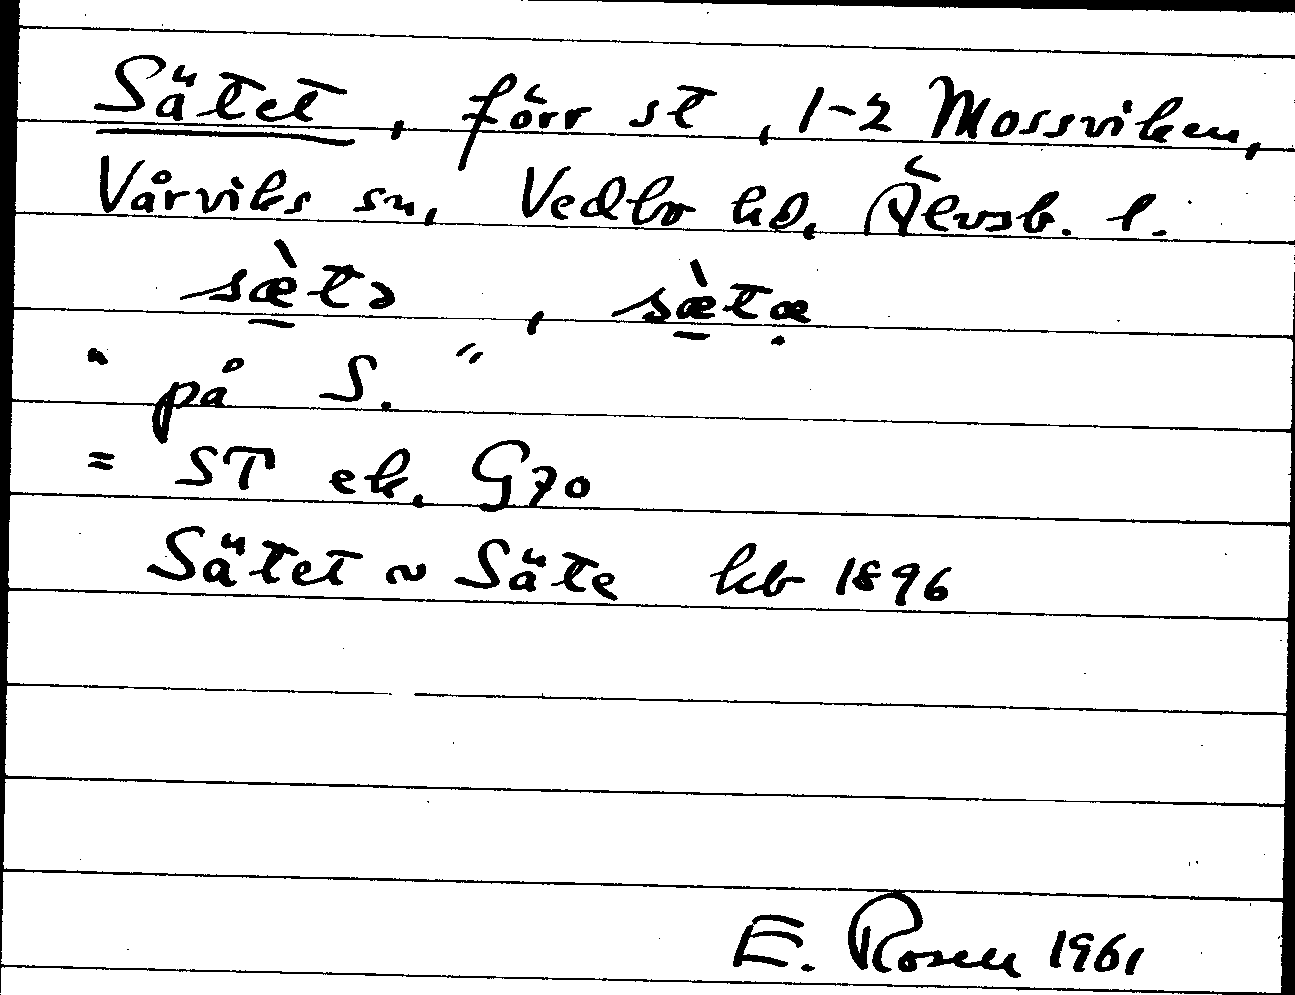 Sätet, förr st, 1-2 Mossviken,
Vårviks sn, Vedbo hd, Älvsb. l.
sæ̀tə, sæ̀tæ̣
"på S."
= ST ek. G70
Sätet ~ Säte kb 1896
E. Rosen 1961